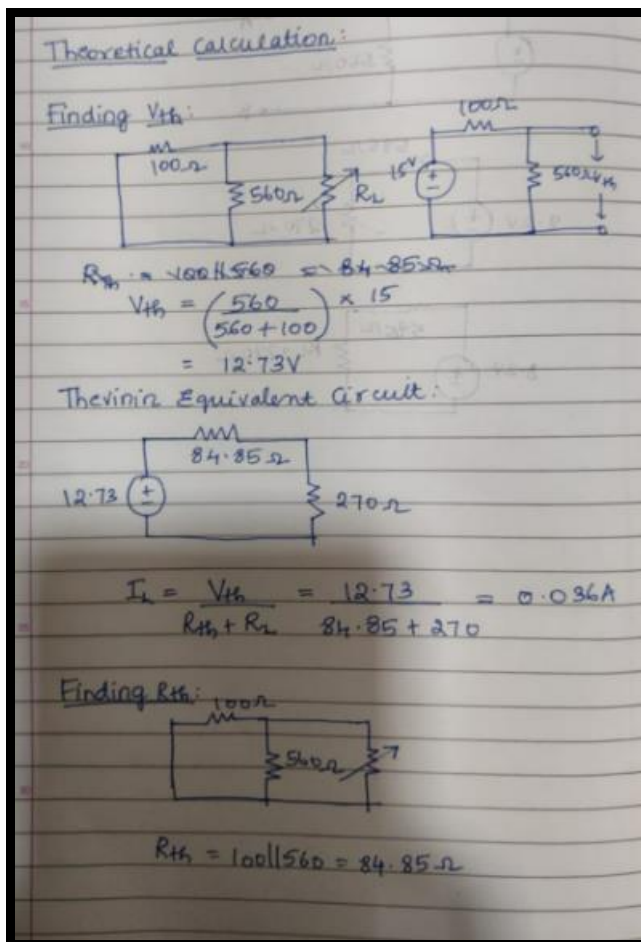 Theoretical Calculation:
Finding Vth:
100Ω
560Ω
RL
100Ω
15V
+
-
560Ω
Vth
Rth = 100||560 = 84.85Ω
Vth = (560 / 560+100) × 15
= 12.73V
Thevinin Equivalent Circuit:
84.85Ω
12.73
+
-
270Ω
IL = Vth / Rth + RL = 12.73 / 84.85 + 270 = 0.036A
Finding Rth:
100Ω
560Ω
Rth = 100||560 = 84.85Ω